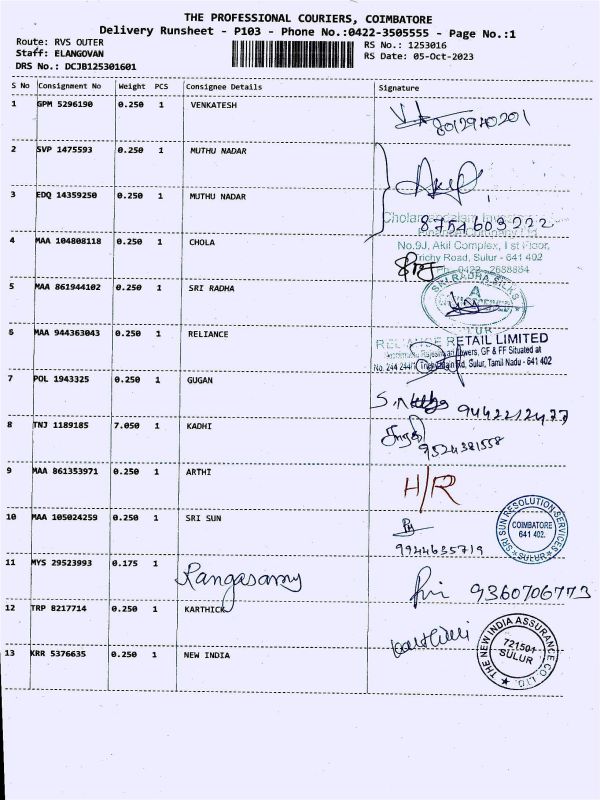 THE PROFESSIONAL COURIERS, COIMBATORE
Delivery Runsheet - P103 - Phone No.:0422-3505555 - Page No.:1
Route: RVS OUTER
Staff: ELANGOVAN
DRS No.: DCJB125301601
RS No.: 1253016
RS Date: 05-Oct-2023
S No Consignment No Weight PCS Consignee Details Signature
1 GPM 5296190 0.250 1 VENKATESH
8012940201
2 SVP 1475593 0.250 1 MUTHU NADAR
3 EDQ 14359250 0.250 1 MUTHU NADAR
8754609002
4 MAA 104808118 0.250 1 CHOLA
No.9J, Akil Complex, I st Floor,
Trichy Road, Sulur - 641 402
Ph : 0422 - 2688884
5 MAA 861944102 0.250 1 SRI RADHA
SRI RADHA SILKS
SULUR
6 MAA 944363043 0.250 1 RELIANCE
RELIANCE RETAIL LIMITED
Towers, GF & FF Situated at
Rd, Sulur, Tamil Nadu - 641 402
7 POL 1943325 0.250 1 GUGAN
9442212477
8 TNJ 1189185 7.050 1 KADHI
9524381558
9 MAA 861353971 0.250 1 ARTHI
H/R
10 MAA 105024259 0.250 1 SRI SUN
9944635719
SRI SUN RESOLUTION SERVICES
COIMBATORE
641 402.
SULUR
11 MYS 29523993 0.175 1 Rangasamy
9360706773
12 TRP 8217714 0.250 1 KARTHICK
13 KRR 5376635 0.250 1 NEW INDIA
THE NEW INDIA ASSURANCE CO. LTD.
721501
SULUR